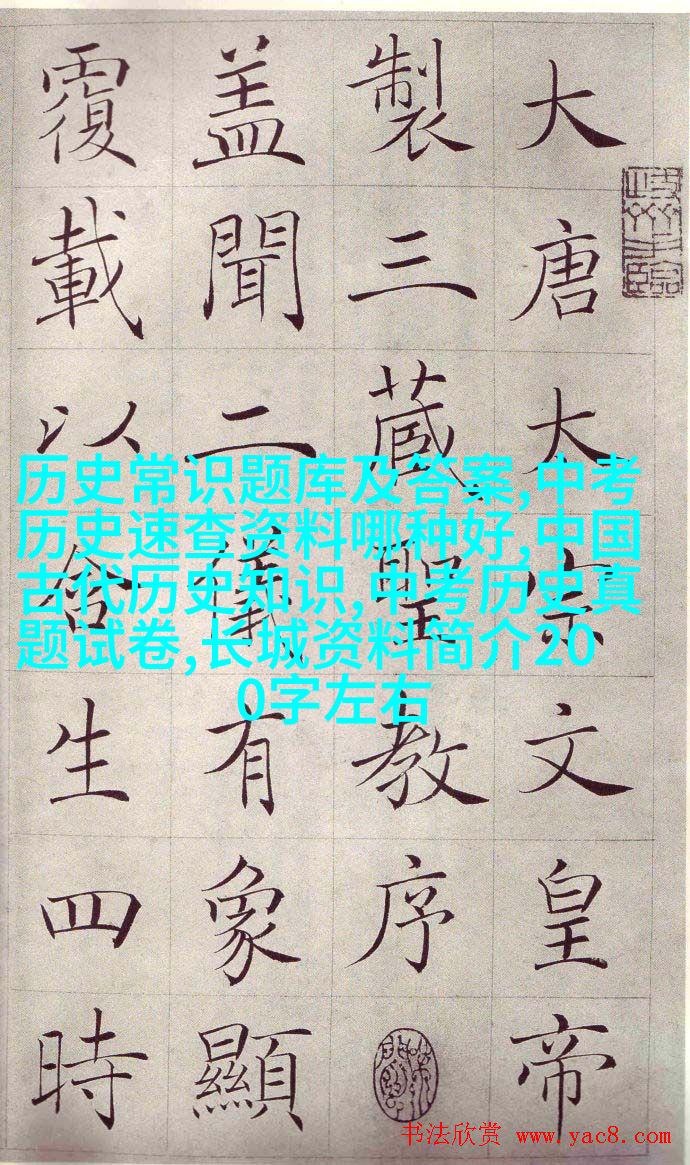 大唐太宗文皇帝
製三藏聖教序
盖聞二儀有象顯
覆載以含生四時
历史常识题库及答案,中考
历史速查资料哪种好,中国
古代历史知识,中考历史真
题试卷,长城资料简介20
0字左右
书法欣赏 www.yac8.com